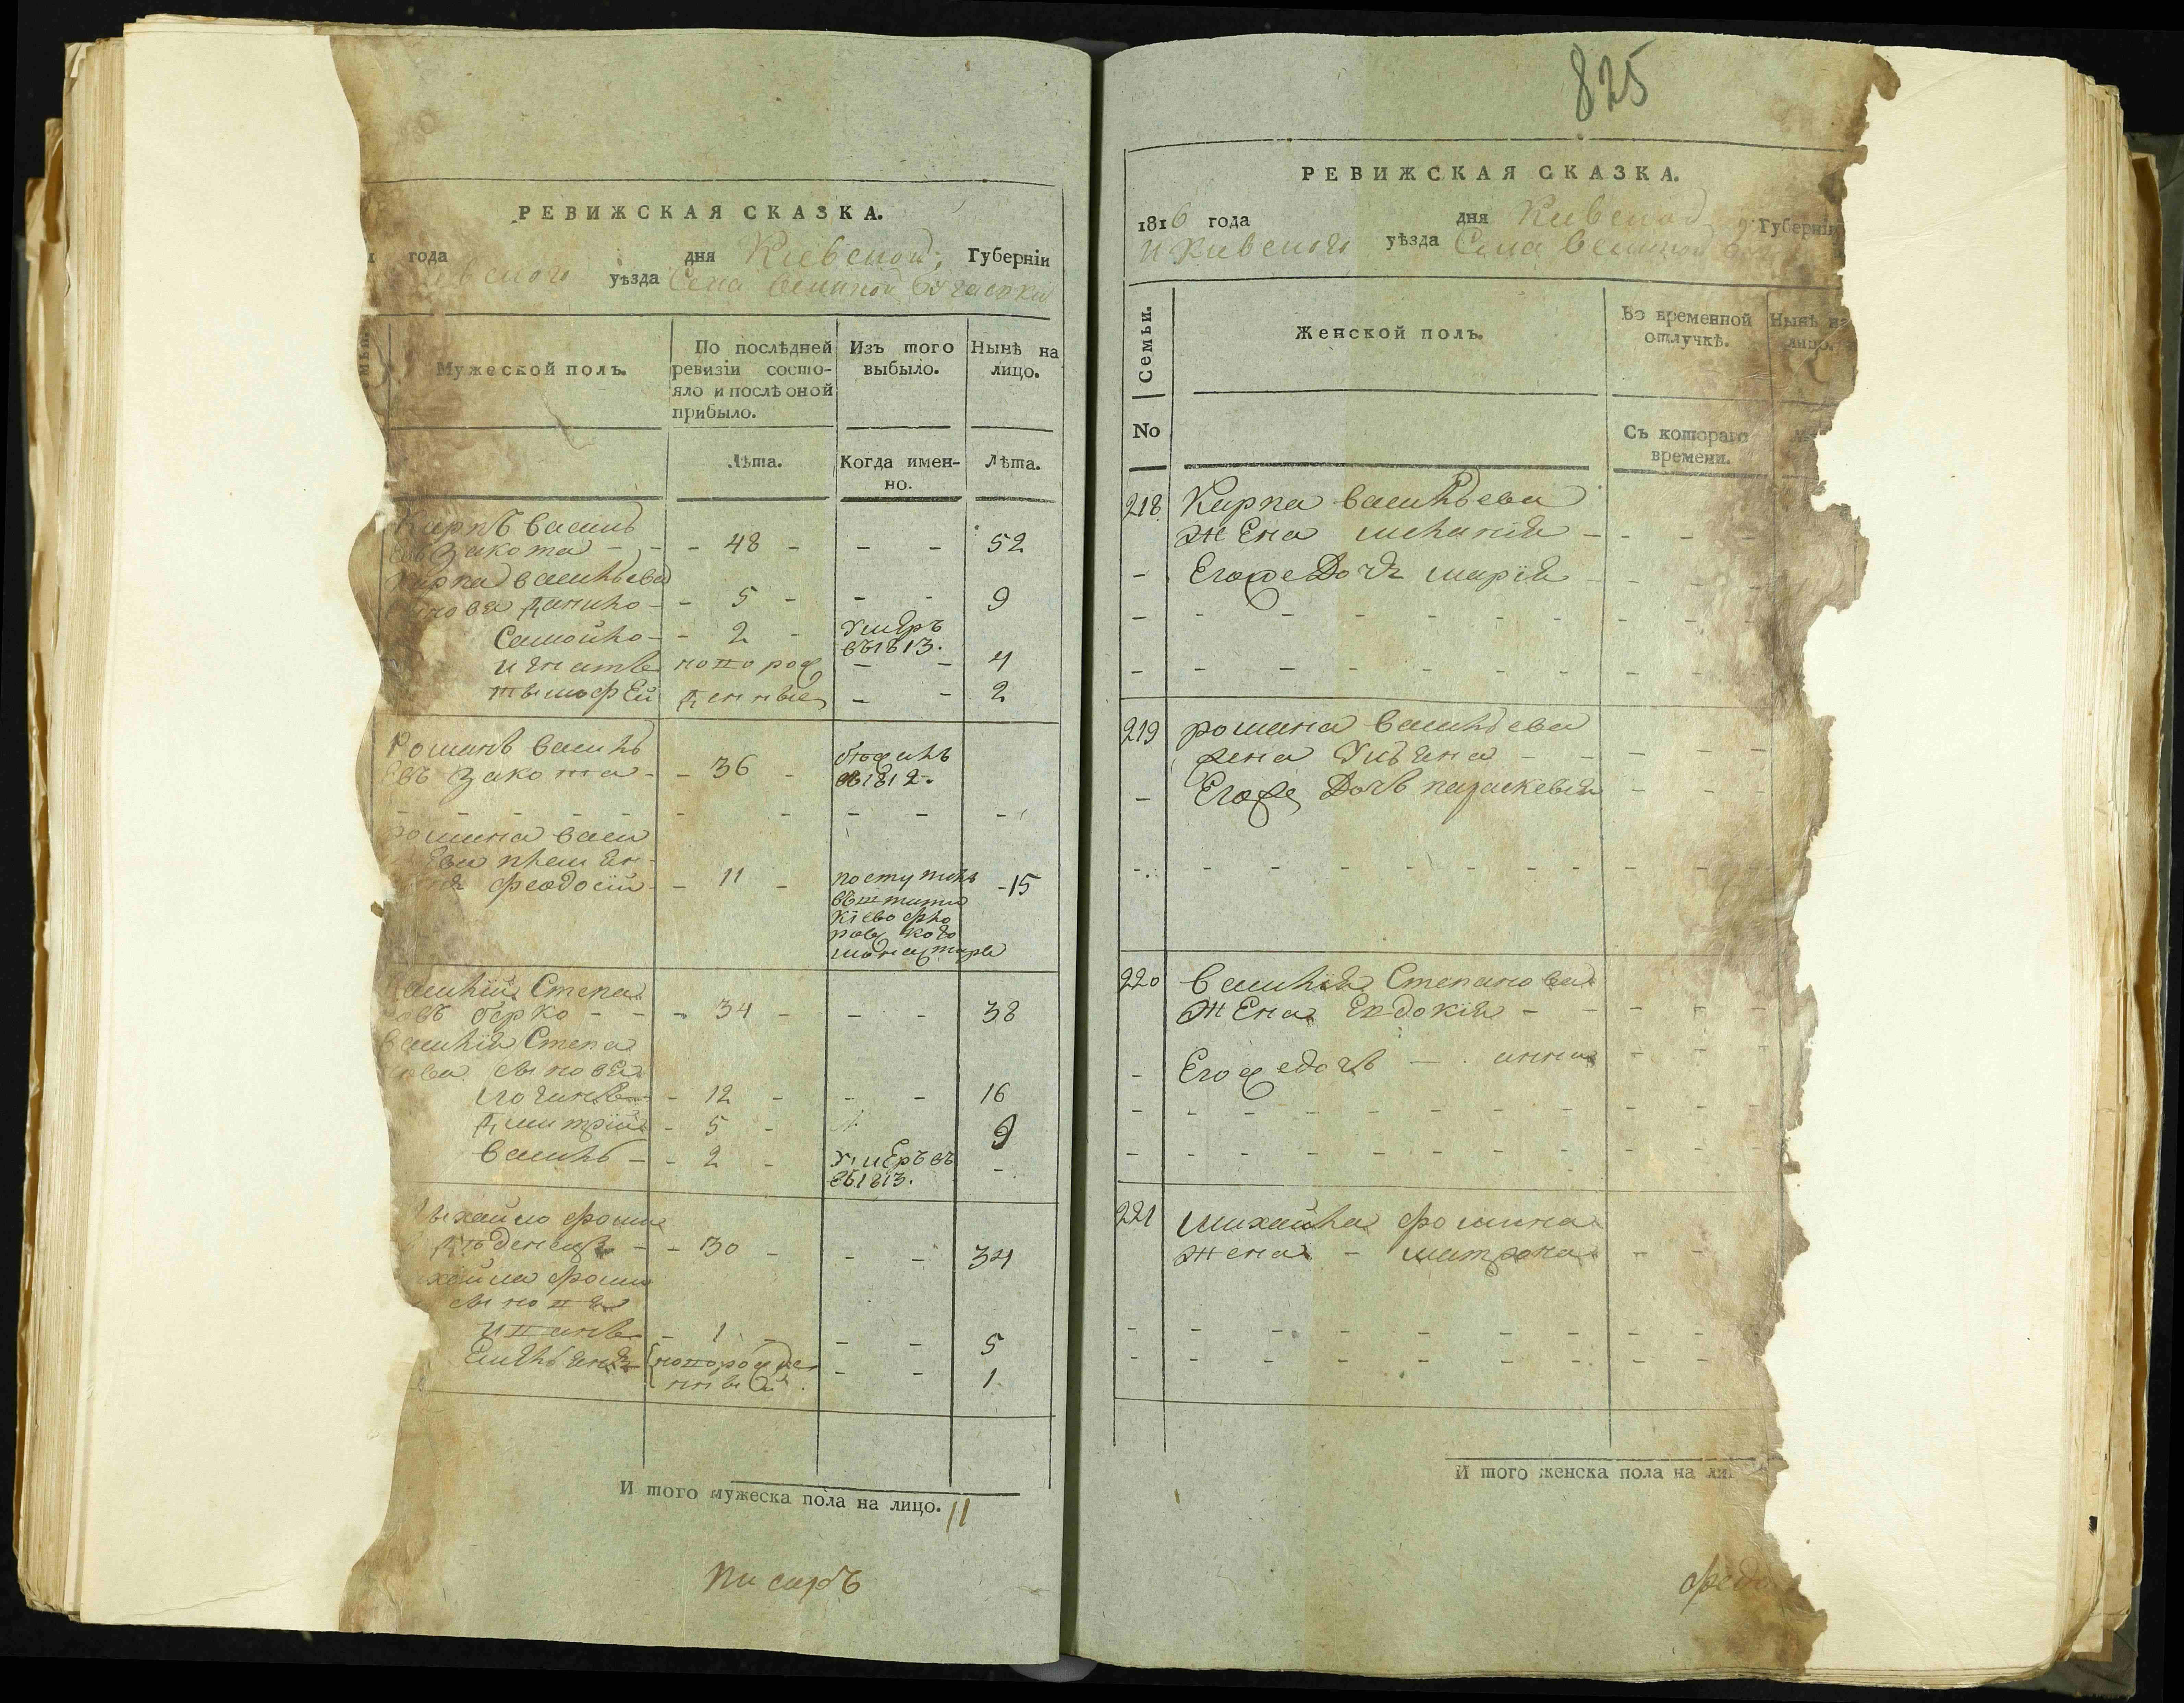 825
РЕВИЖСКАЯ СКАЗКА.
года дня Киевской, Губернїи
вского уѣзда Села великой Бугаевки
Мужеской полъ.
По послѣдней ревизіи состо-
яло и послѣ оной
прибыло.
Изъ того
выбыло.
Нынѣ на
лицо.
Лѣта.
Когда имен-
но.
Лѣта.
Карпъ василь
евъ закота - - 48 - - - 52
Карпа васильева
сынове данило - - 5 - - - 9
Самойло - - 2 - умеръ
въ 1813.
игнатъ новорож - - 4
тымофей денные - - 2
Романъ василь
евъ закота - - 36 - отдань
въ 1812.
романа васи
ева племян
феодосій - - 11 - поступилъ - 15
въ штатъ
кіево фло
ровского
монастыря
василій Степа
овъ берко - - - 34 - - - 38
василія Степа
нова сынове
логинъ - 12 - - - 16
дмитрій - 5 - 9
василь - - 2 - умеръ въ -
въ 1813.
михайло фоми
- - 30 - - - 34
хайла фоми
сынове
иванъ - 1 - - - 5
емельянъ новорожде - - 1
нный.
И того мужеска пола на лицо. 11
писаръ
РЕВИЖСКАЯ СКАЗКА.
1816 года дня Киевской Губернїи
и Киевского уѣзда Села великой
Семьи.
Женской полъ.
Во временной
отлучкѣ.
Нынѣ на
лицо.
No
Съ котораго
времени.
218 Карпа васильева
жена меланія - - - -
- Егоже дочь марія - - - -
219 романа васильева
жена улїяна - - - - -
- Егоже дочь параскевія - - -
220 василія Степанова
жена Евдокія - - - - -
- Егожедочь - анна - - -
221 михайла фомина
жена - матрона - -
И того женска пола на ли
федо